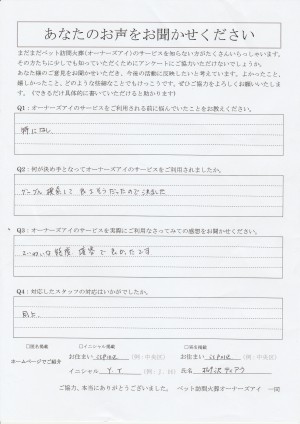 あなたのお声をお聞かせください
まだまだペット訪問火葬(オーナーズアイ)のサービスを知らない方がたくさんいらっしゃいます。
その方たちに少しでも知っていただくためにアンケートにご協力いただけないでしょうか。
あなた様のご意見をお聞かせいただき、今後の活動に反映したいと考えています。よかったこと、
嬉しかったこと、どのような些細なことでもけっこうです。ぜひご協力をよろしくお願いいたしま
す。(できるだけ具体的に書いていただけると助かります)
Q1:オーナーズアイのサービスをご利用される前に悩んでいたことをお教えください。
特になし
Q2:何が決め手となってオーナーズアイのサービスをご利用されましたか。
グーグル検索して良さそうだったので決めました
Q3:オーナーズアイのサービスを実際にご利用なさってみての感想をお聞かせください。
です
Q4:対応したスタッフの対応はいかがでしたか。
同上
□匿名掲載 □イニシャル掲載 □実名掲載
ホームページでご紹介
お住まい (例:中央区) お住まい (例:中央区)
イニシャル Y.T (例:J.H) 氏名
ご協力、本当にありがとうございました。 ペット訪問火葬オーナーズアイ 一同